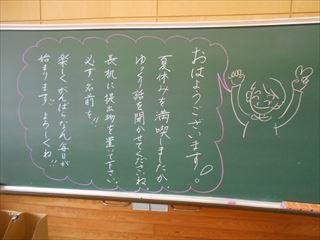 おはようございます!
夏休みを満喫しましたか。
ゆっくり話を聞かせてくださいね。
長机に提出物を置いて下さい。
必ず名前を!!
楽しくがんばるなん毎日が
始まります!! よろしくね!!